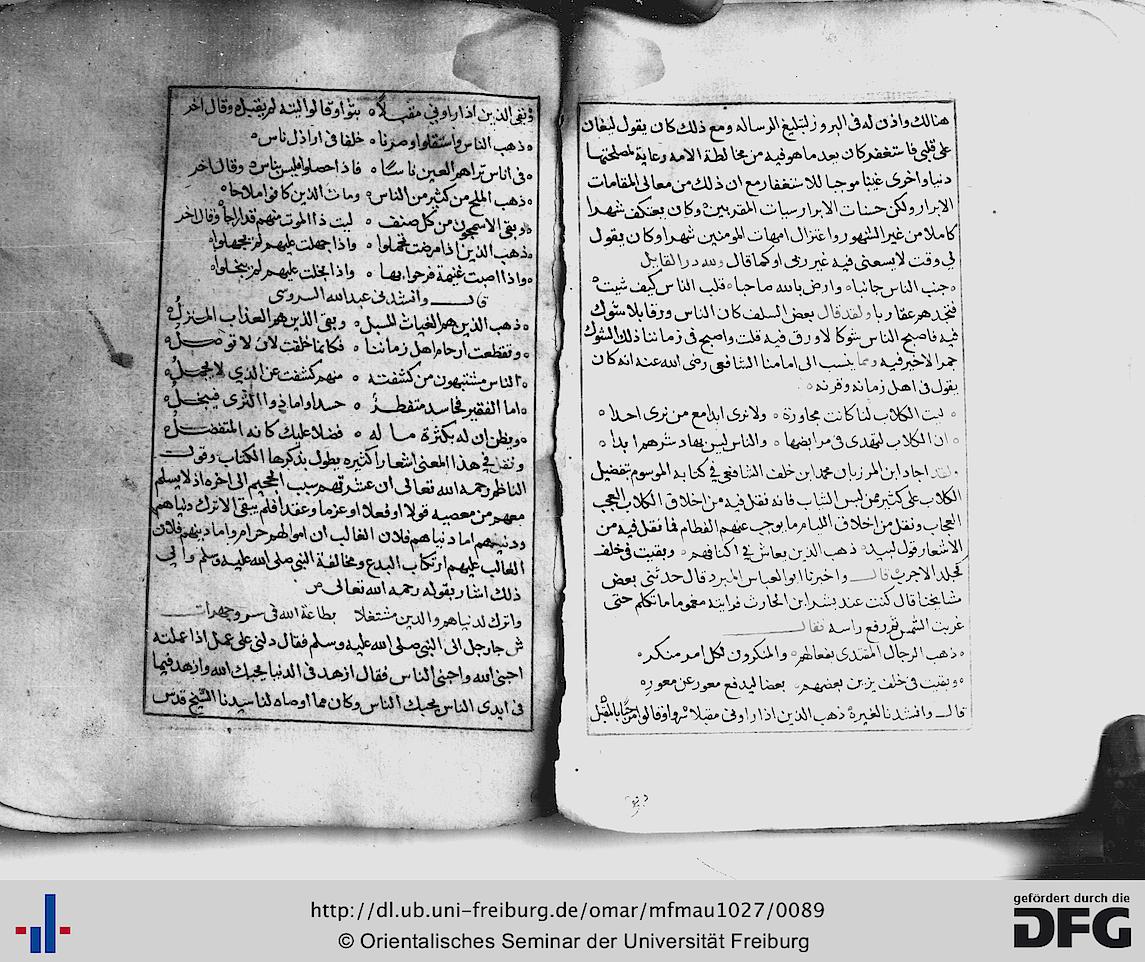 هنالك واذن له فى البروز لتبليغ الرساله ومع ذلك كان يقول ليغان
على قلبى فاستغفر كان يعد ما هو فيه من مخالطة الامه رعاية لمصلحتها
دنيا واخرى غينا موجبا للاستغفار مع ان ذلك من معالى المقامات
الابرار ولكن حسنات الابرار سيات المقربين وكان يعتكف شهرا
كاملا من غير الشهور واعتزال امهات المومنين شهرا وكان يقول
لى وقت لا يسعنى فيه غير ربى او كما قال ولله در القايل
جنب الناس جانبا وارض بالله صاحبا قلب الناس كيف شيت
تجدهم عقاربا ولقد قال بعض السلف كان الناس ورقا بلا شوك
فيه فاصبح الناس شوكا لا ورق فيه قلت واصبح فى زماننا ذلك الشوك
جمر الاخير فيه ومما ينسب الى امامنا الشافعى رضى الله عنه انه كان
يقول فى اهل زمانه وقرنه
ليت الكلاب لنا كانت مجاورة ولا نرى ابدا مع من نرى احدا
ان الكلاب لتهدى فى مرابضها والناس ليس بهاد شرهم ابدا
ولقد اجاد ابن المرزبان محمد ابن خلف الشافعى في كتابه الموسوم بتفضيل
الكلاب على كثير ممن لبس الثياب فانه نقل فيه من اخلاق الكلاب العجب
العجاب ونقل من اخلاق اللئام ما يوجب عنهم الفطام فما نقل فيه من
الاشعار قول لبيد ذهب الذين يعاش في اكنافهم وبقيت فى خلف
كجلد الاجرب قال واخبرنا ابو العباس المبرد قال حدثنى بعض
مشايخنا قال كنت عند بشر ابن الحارث فرايته مغموما ما تكلم حتى
غربت الشمس ثم رفع راسه فقال
ذهب الرجال المقتدى بفعالهم والمنكرون لكل امر منكر
وبقيت فى خلف يزين بعضهم بعضا ليدفع معور عن معور
قال وانشدنا لغيره ذهب الذين اذا راونى مقبلا سروا وقالوا مرحبا بالمقبل
وبقى الذين اذا راونى مقبلا قالوا ليته لم يقبل وقال اخر
ذهب الناس واستقلوا وصرنا خلفا فى اراذل ناس
فى اناس تراهم العين ناسا فاذا حصلوا فليس بناس وقال اخر
ذهب الملح من كثير من الناس ومات الذين كانوا ملاحا
وبقى الاسمجون من كل صنف ليت ذا الموت منهم قد اراحا وقال اخر
ذهب الذين اذا مرضت تحملوا واذا جهلت عليهم لم يجهلوا
واذا اصبت غنيمة فرحوا بها واذا بخلت عليهم لم يبخلوا
قال وانشدنى عبدالله السروسى
ذهب الذين هم الغياث المسبل وبقى الذين هم العذاب المنزل
وتقطعت ارحام اهل زماننا فكانما خلقت لان لا توصل
الناس مشتبهون من كشفته منهم كشفت عن الذي لا يجمل
اما الفقير فحاسد متفطر حسدا واما ذوا الثرى فيبخل
ويظن ان له بكثرة ماله فضلا عليك كانه المتفضل
ونقل في هذا المعنى اشعارا كثيره يطول بذكرها الكتاب وقول
الناظم رحمه الله تعالى ان عشرتهم سبب الجحيم الى اخره اذ لا يسلم
معهم من معصيه قولا او فعلا او عزما وعقدا فلم يبق الا ترك دنياهم
ودينهم اما دنياهم فلان الغالب ان اموالهم حرام واما دينهم فلان
الغالب عليهم ارتكاب البدع ومخالفة النبى صلى الله عليه وسلم والى
ذلك اشار بقوله رحمه الله تعالى ص
واترك لدنياهم والدين مشتغلا بطاعة الله فى سر وجهرات
ش جا رجل الى النبى صلى الله عليه وسلم فقال دلنى على عمل اذا عملته
احبنى الله واحبنى الناس فقال ازهد فى الدنيا يحبك الله وازهد فيما
فى ايدى الناس يحبك الناس وكان مما اوصاه لنا سيدنا الشيخ قدس
http://dl.ub.uni-freiburg.de/omar/mfmau1027/0089
© Orientalisches Seminar der Universität Freiburg
gefördert durch die
DFG